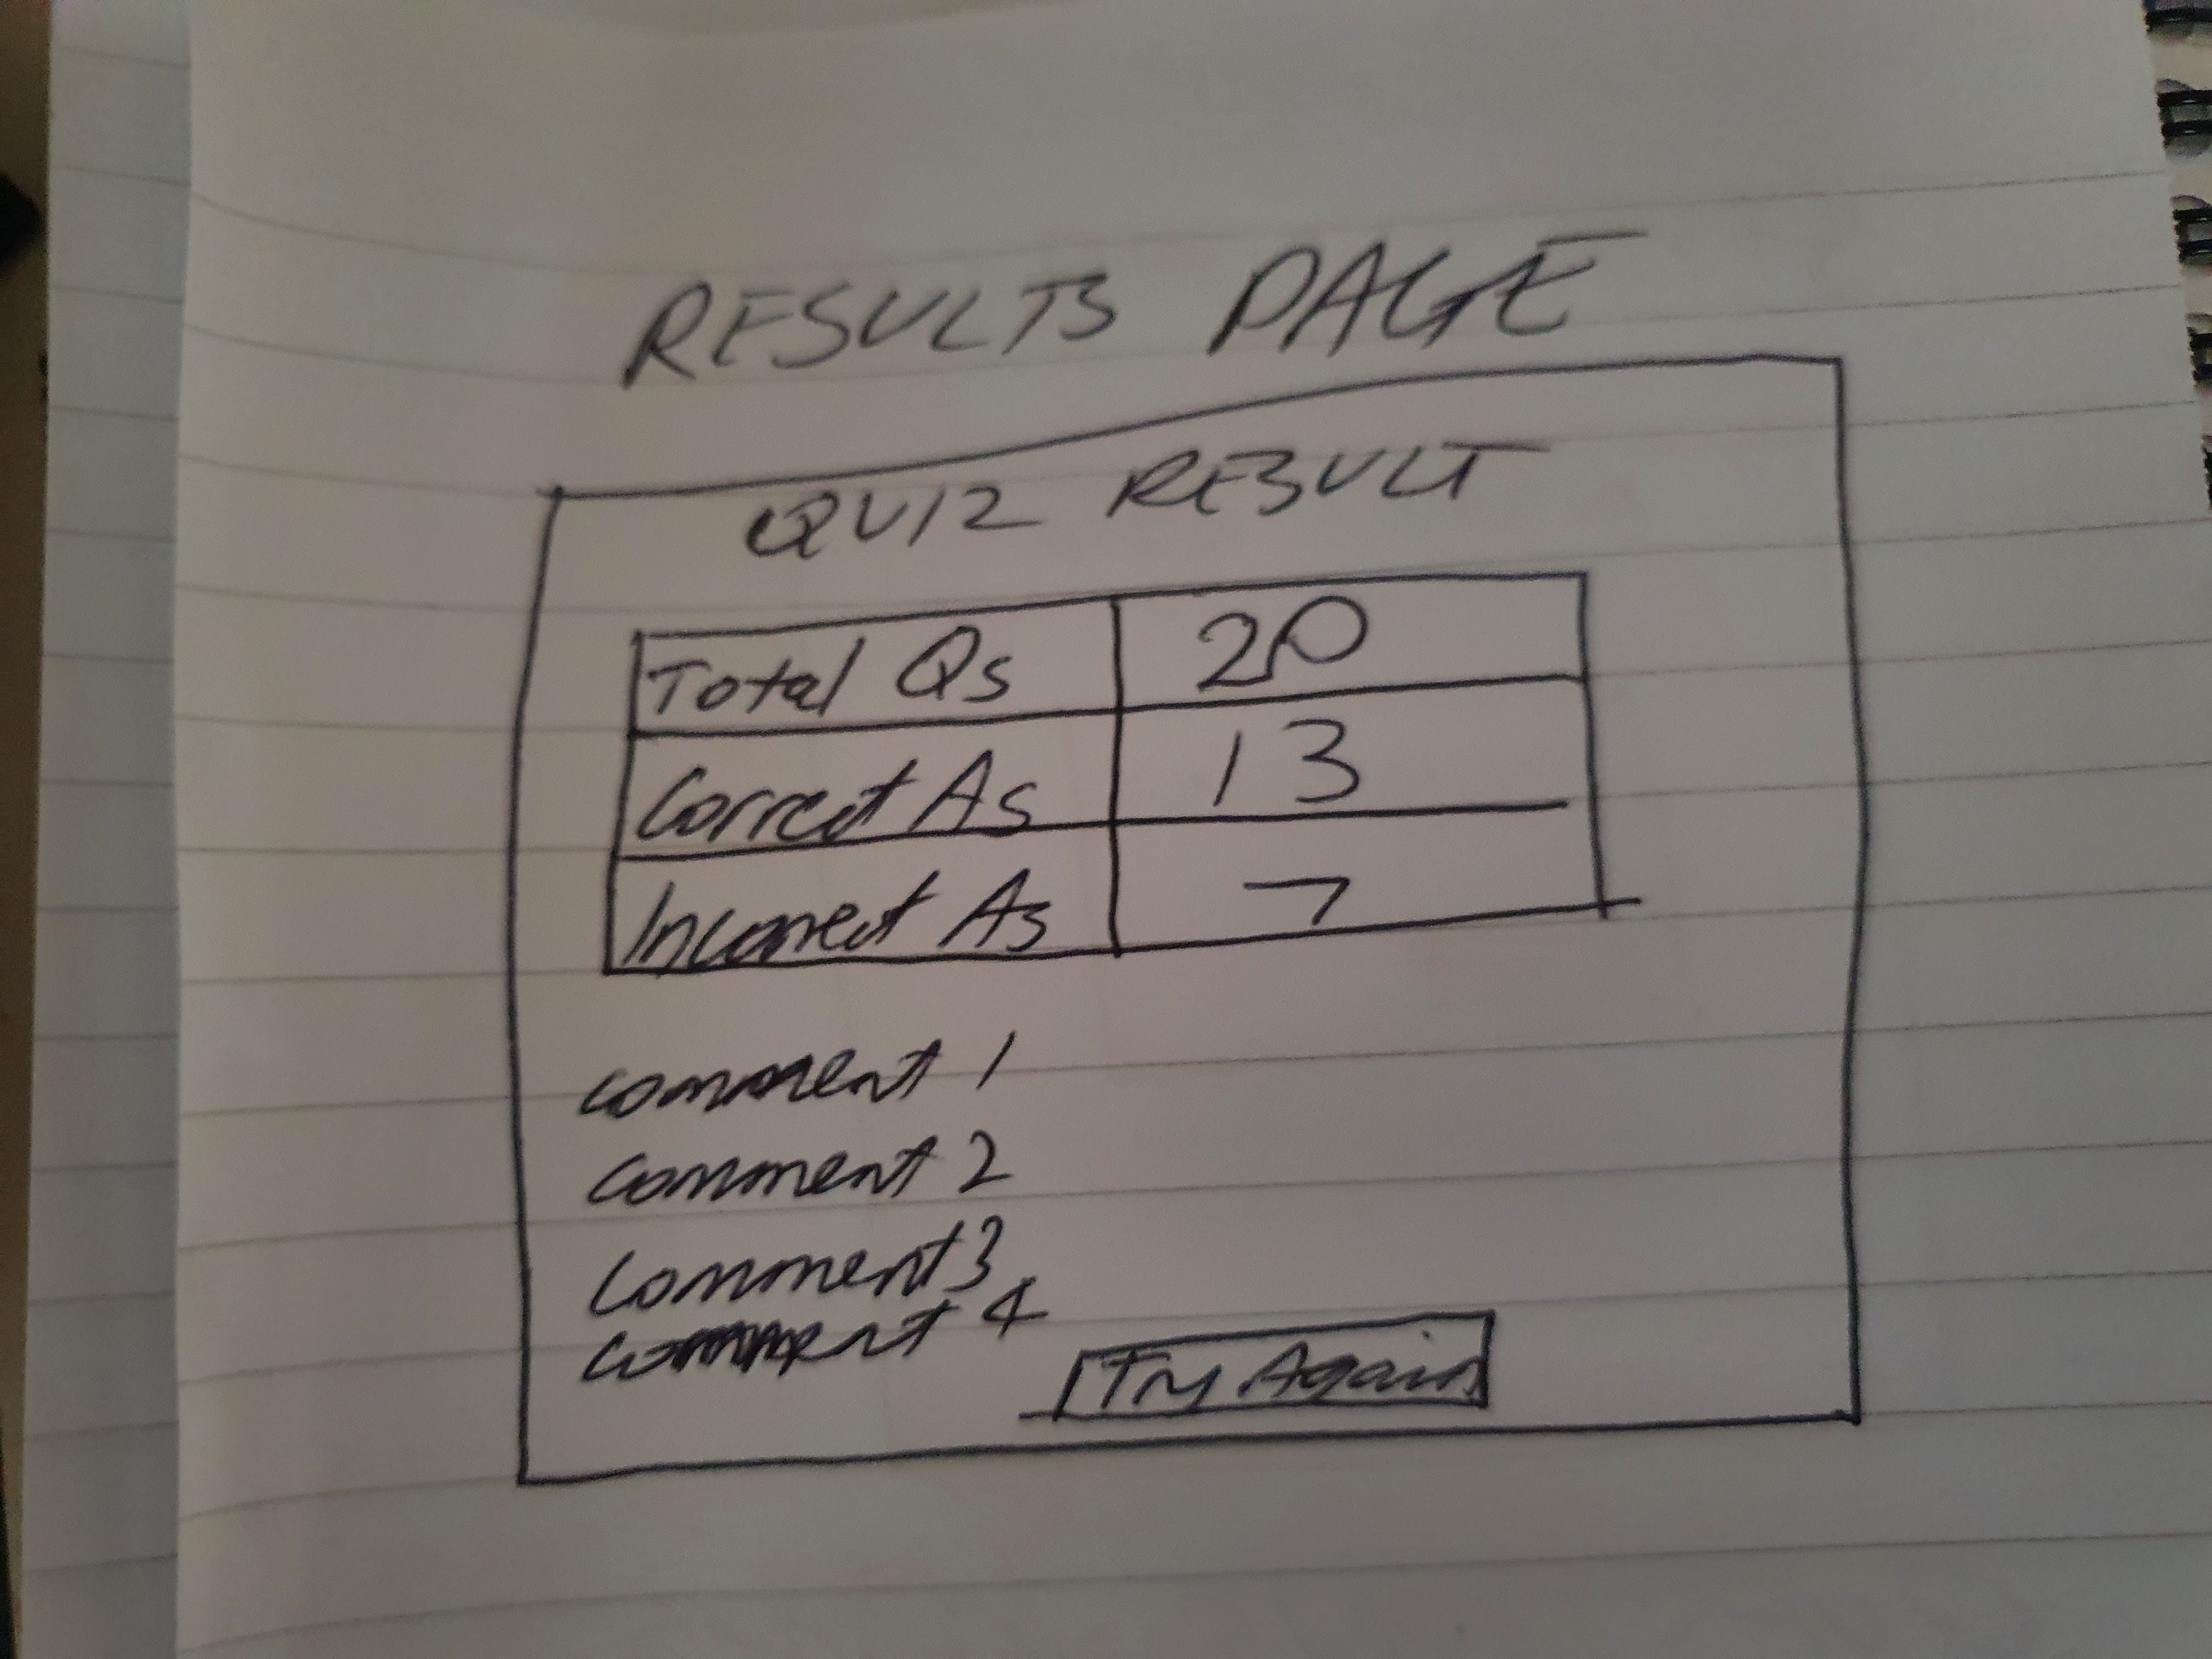 RESULTS PAGE
QUIZ RESULT
Total Qs 20
Correct As 13
Incorrect As 7
comment 1
comment 2
comment 3
comment 4
Try Again